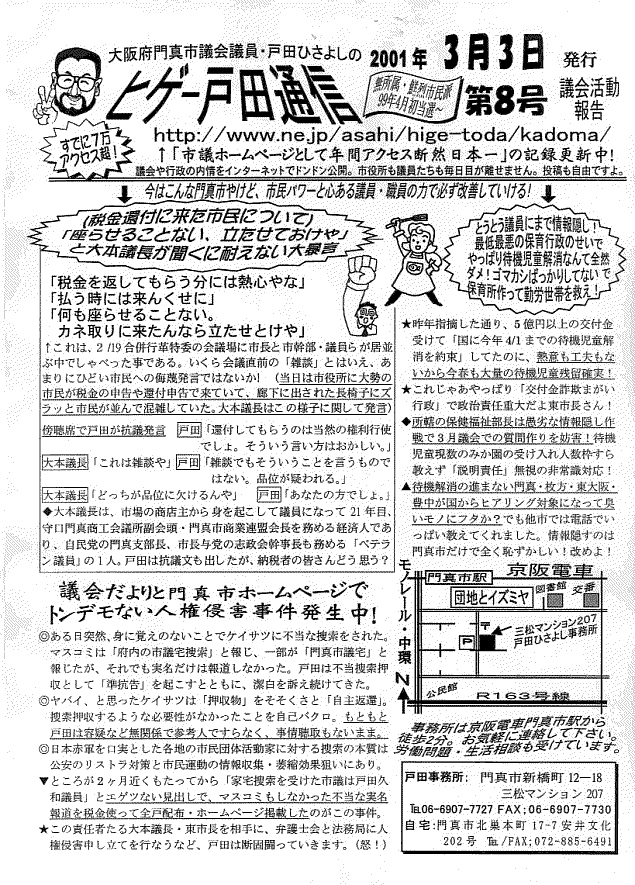 大阪府門真市議会議員・戸田ひさよしの
2001年 3月3日 発行
ヒゲー戸田通信
無所属・鮮烈市民派
99年4月初当選～
第8号
議会活動
報告
すでに7万
アクセス超！
http://www.ne.jp/asahi/hige-toda/kadoma/
↑「市議ホームページとして年間アクセス断然日本一」の記録更新中！
議会や行政の内情をインターネットでドンドン公開。市役所も議員たちも毎日目が離せません。投稿も自由ですよ。
今はこんな門真市やけど、市民パワーと心ある議員・職員の力で必ず改善していける！
（税金還付に来た市民について）
「座らせることない、立たせておけや」
と大本議長が聞くに耐えない大暴言
「税金を返してもらう分には熱心やな」
「払う時には来んくせに」
「何も座らせることない。
カネ取りに来たんなら立たせとけや」
↑これは、2/19合併行革特委の会議場に市長と市幹部・議員らが居並
ぶ中でしゃべった事である。いくら会議直前の「雑談」とはいえ、あ
まりにひどい市民への侮蔑発言ではないか！（当日は市役所に大勢の
市民が税金の申告や還付申告で来ていて、廊下に出された長椅子にズ
ラッと市民が並んで混雑していた。大本議長はこの様子に関して発言）
傍聴席で戸田が抗議発言 戸田「還付してもらうのは当然の権利行使
でしょ。そういう言い方はおかしい。」
大本議長「これは雑談や」 戸田「雑談でもそういうことを言うもので
はない。品位が疑われる。」
大本議長「どっちが品位に欠けるんや」 戸田「あなたの方でしょ。」
◆大本議長は、市場の商店主から身を起こして議員になって21年目、
守口門真商工会議所副会頭・門真市商業連盟会長を務める経済人であ
り、自民党の門真支部長、市長与党の志政会幹事長も務める「ベテラ
ン議員」の1人。戸田は抗議文も出したが、納税者の皆さんどう思う？
とうとう議員にまで情報隠し！
最低最悪の保育行政のせいで
やっぱり待機児童解消なんて全然
ダメ！ゴマカシばっかりしてないで
保育所作って勤労世帯を救え！
★昨年指摘した通り、5億円以上の交付金
受けて「国に今年4/1までの待機児童解
消を約束」してたのに、熱意も工夫もな
いから今春も大量の待機児童残留確実！
★これじゃあやっぱり「交付金詐欺まがい
行政」で政治責任重大だよ東市長さん！
◆所轄の保健福祉部長は愚劣な情報隠し作
戦で3月議会での質問作りを妨害！待機
児童現数のみか園の受け入れ人数枠すら
教えず「説明責任」無視の非常識対応！
▲待機解消の進まない門真・枚方・東大阪・
豊中が国からヒアリング対象になって臭
いモノにフタか？でも他市では電話でい
っぱい教えてくれました。情報隠すのは
門真市だけで全く恥ずかしい！改めよ！
議会だよりと門真市ホームページで
トンデモない人権侵害事件発生中！
◎ある日突然、身に覚えのないことでケイサツに不当な捜索をされた。
マスコミは「府内の市議宅捜索」と報じ、一部が「門真市議宅」と
報じたが、それでも実名だけは報道しなかった。戸田は不当捜索押
収として「準抗告」を起こすとともに、潔白を訴え続けてきた。
◎ヤバイ、と思ったケイサツは「押収物」をそそくさと「自主返還」。
捜索押収するような必要性がなかったことを自己バクロ。もともと
戸田は容疑など無関係で参考人ですらなく、事情聴取もないまま。
◎日本赤軍を口実とした各地の市民団体活動家に対する捜索の本質は
公安のリストラ対策と市民運動の情報収集・萎縮効果狙いにあり。
▼ところが2ヶ月近くもたってから「家宅捜索を受けた市議は戸田久
和議員」とエゲツない見出しで、マスコミもしなかった不当な実名
報道を税金使って全戸配布・ホームページ掲載したのがこの事件。
★この責任者たる大本議長・東市長を相手に、弁護士会と法務局に人
権侵害申し立てを行なうなど、戸田は断固闘っていきます。（怒！）
モノレール・中環
門真市駅
京阪電車
団地とイズミヤ
図書館
交番
〒
P
三松マンション207
戸田ひさよし事務所
N
公民館
R163号線
事務所は京阪電車門真市駅から
徒歩2分。お気軽に連絡して下さい。
労働問題・生活相談も受けています。
戸田事務所： 門真市新橋町12－18
三松マンション207
TEL06-6907-7727 FAX；06-6907-7730
自宅：門真市北巣本町17-7安井文化
202号 TEL/FAX；072-885-6491